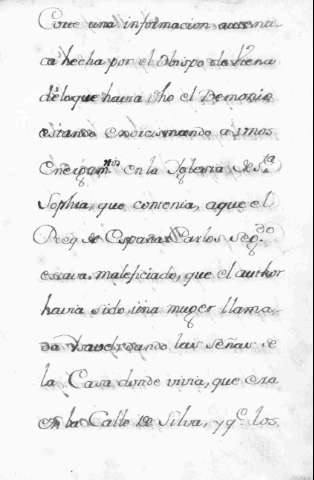 Core una informacion autenti
ca hecha por el Obispo de Viena
de lo que havia dho el Demonio
estando exorcisando a unos
Energum.nos en la Yglesia de S.ta
Sophia, que contenia, aque el
Rey de España Carlos Seg.do
estava maleficiado, que el author
havia sido una muger llama
da Ysavel, dando las señas de
la Casa donde vivia, que era
en la Calle de Silva, y q.e los